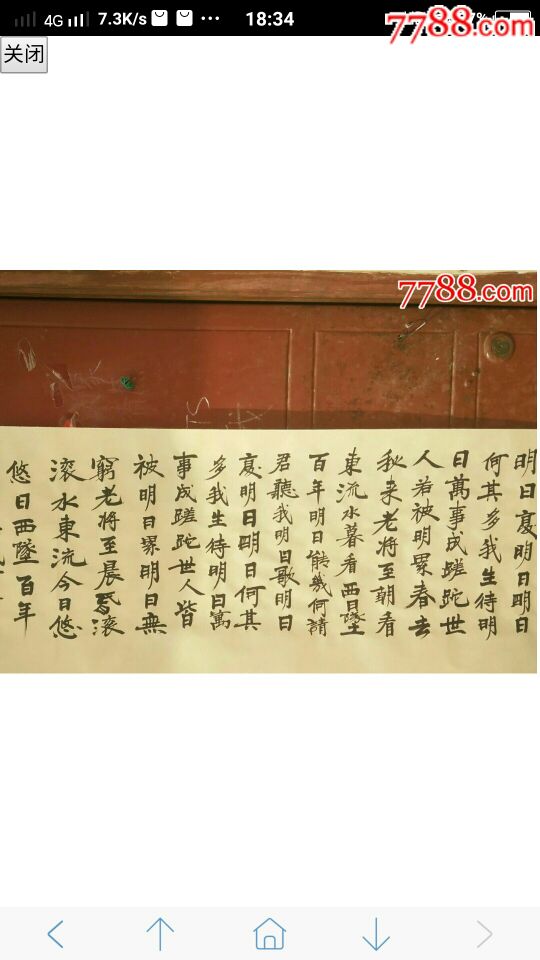 4G 7.3K/s ··· 18:34 %
7788.com
关闭
7788.com
明日复明日明日
何其多我生待明
日萬事成蹉跎世
人若被明累春去
秋来老將至朝看
東流水暮看西日墜
百年明日能幾何請
君聽我明日歌明日
复明日明日何其
多我生待明日萬
事成蹉跎世人皆
被明日累明日無
窮老將至晨昏滚
滚水東流今日悠
悠日西墜百年